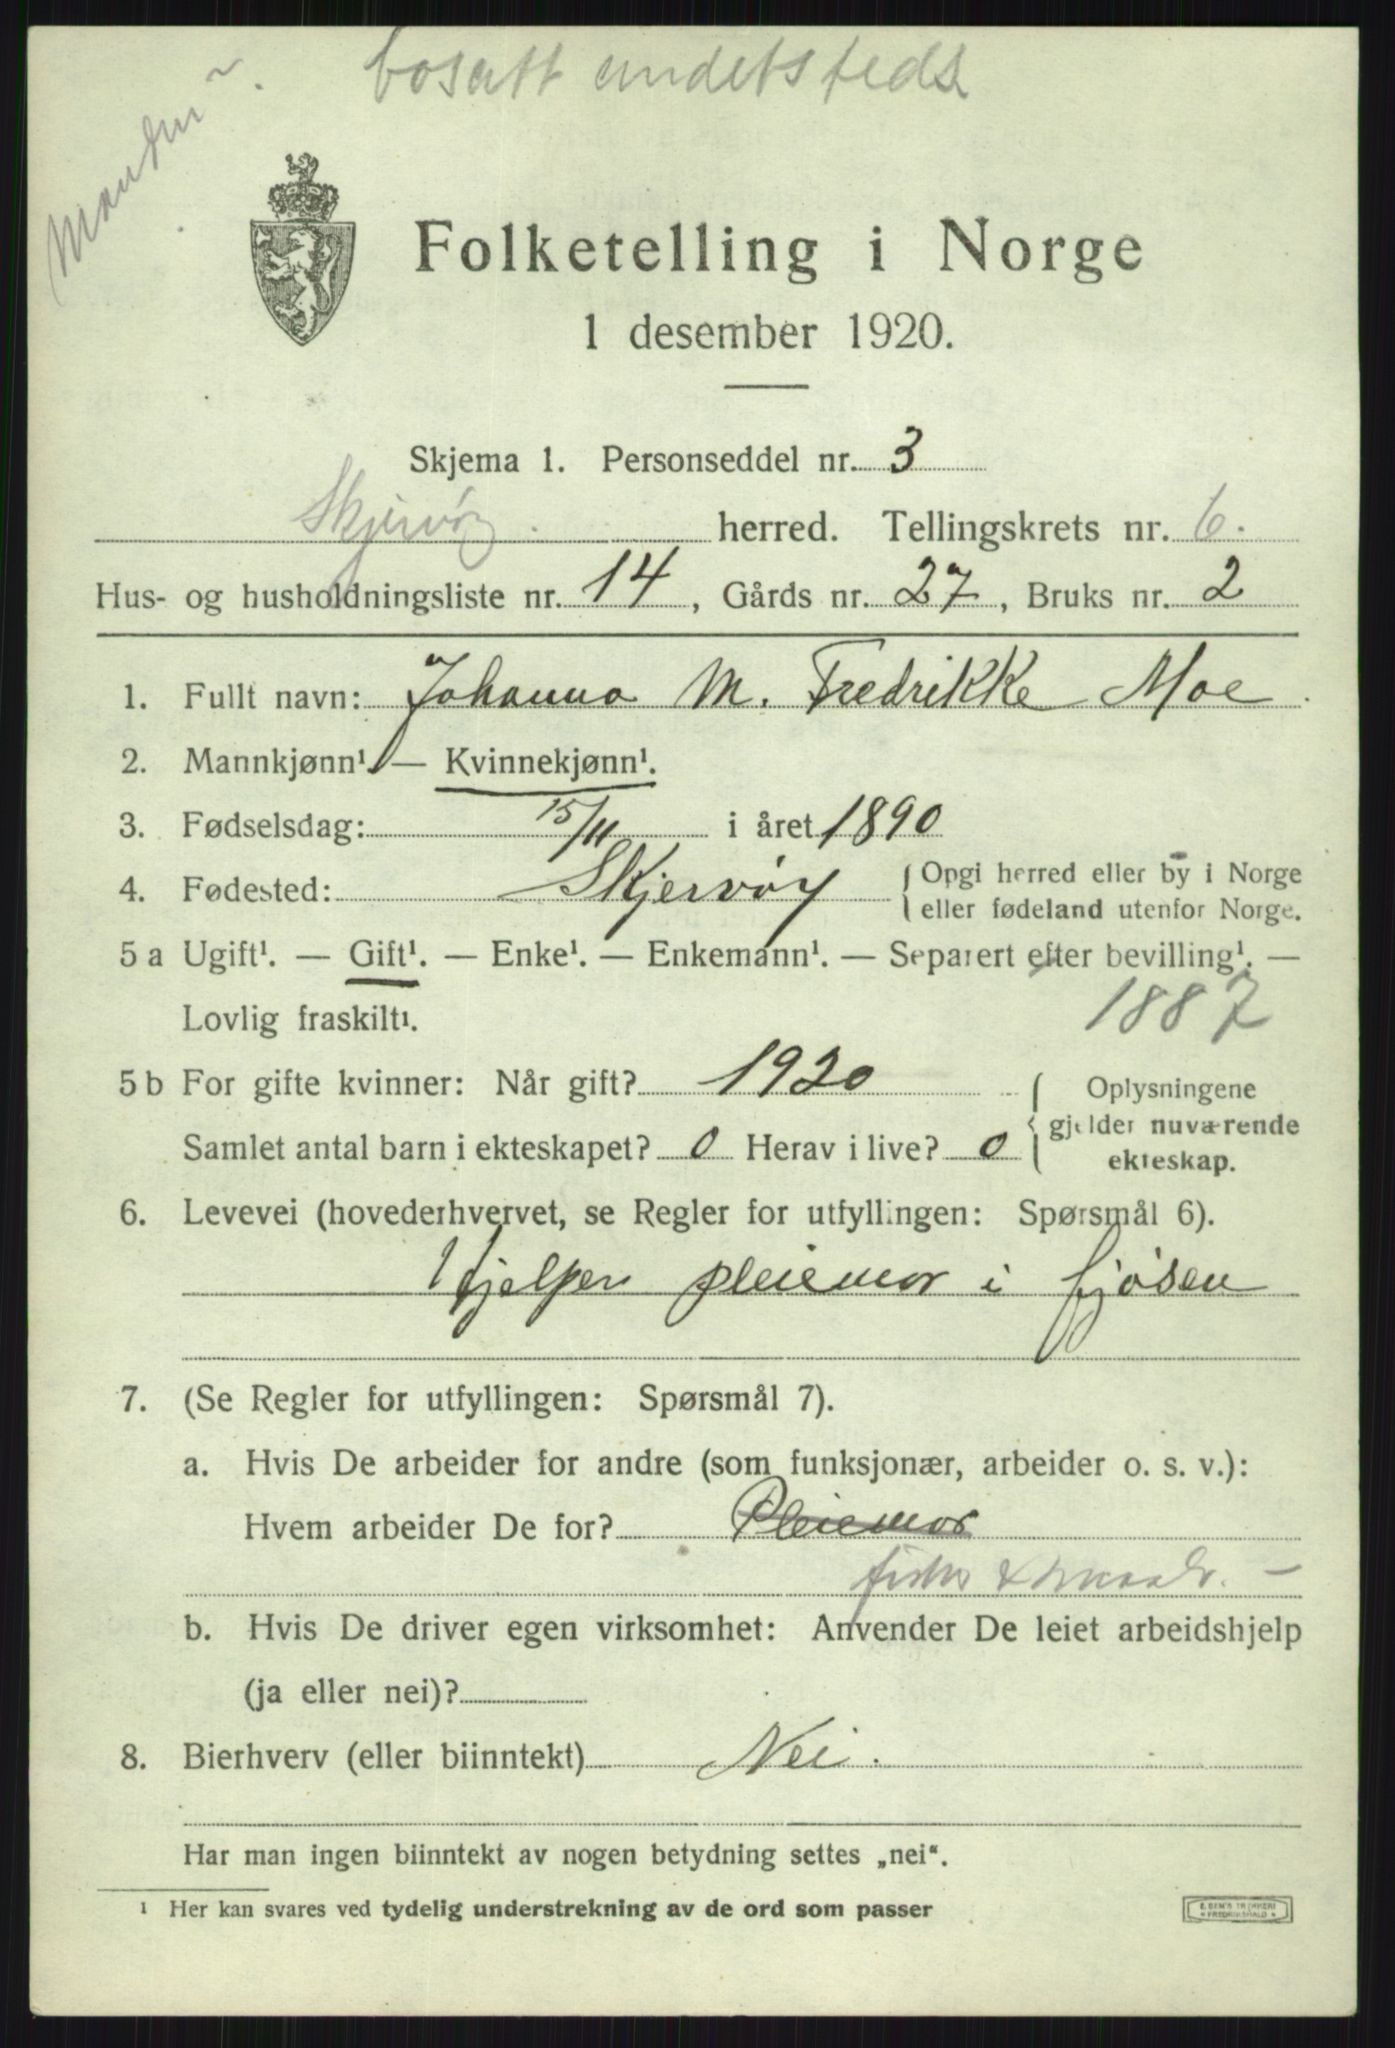 Manden
bosatt andetsteds
Folketelling i Norge
1 desember 1920.
Skjema 1. Personseddel nr. 3
Skjervøy herred. Tellingskrets nr. 6.
Hus- og husholdningsliste nr. 14, Gårds nr. 27, Bruks nr. 2
1. Fullt navn: Johanna M. Fredrikke Moe.
2. Mannkjønn¹. — Kvinnekjønn¹.
3. Fødselsdag: 15/11 i året 1890
4. Fødested: Skjervöy { Opgi herred eller by i Norge
eller fødeland utenfor Norge.
5 a Ugift¹. — Gift¹. — Enke¹. — Enkemann¹. — Separert efter bevilling¹. —
Lovlig fraskilt¹. 1887
5 b For gifte kvinner: Når gift? 1920 { Oplysningene
gjelder nuværende
Samlet antal barn i ekteskapet? 0 Herav i live? 0
ekteskap.
6. Levevei (hovederhvervet, se Regler for utfyllingen: Spørsmål 6).
Hjelper pleiemor i fjösen
7. (Se Regler for utfyllingen: Spørsmål 7).
a. Hvis De arbeider for andre (som funksjonær, arbeider o. s. v.):
Hvem arbeider De for? Pleiemor
fisker
b. Hvis De driver egen virksomhet: Anvender De leiet arbeidshjelp
(ja eller nei)?
8. Bierhverv (eller biinntekt) Nei.
Har man ingen biinntekt av nogen betydning settes „nei“.
¹ Her kan svares ved tydelig understrekning av de ord som passer